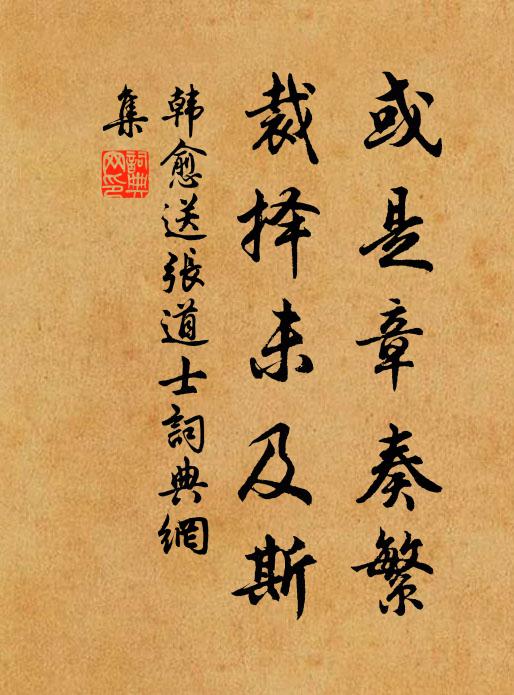 或是章奏繁
裁择未及斯
韩愈送張道士詞典網
集
詞典网印